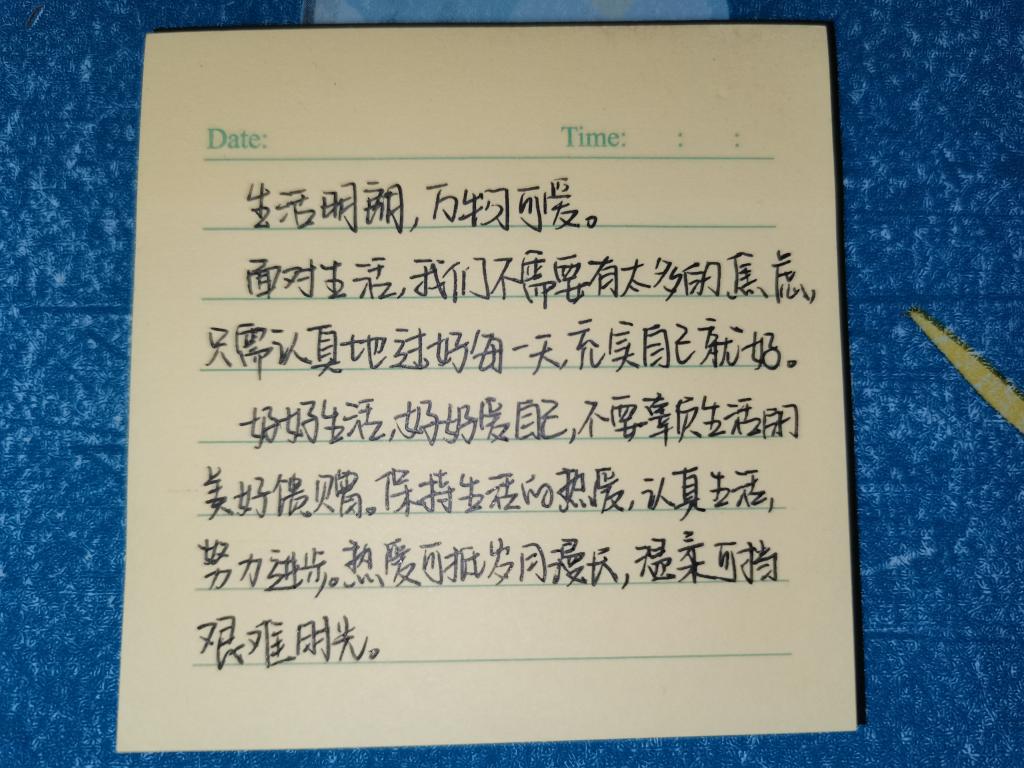 Date: Time: : :
生活明朗，万物可爱。
面对生活，我们不需要有太多的焦虑，
只需认真地过好每一天，充实自己就好。
好好生活，好好爱自己，不要辜负生活的
美好馈赠。保持生活的热爱，认真生活，
努力进步。热爱可抵岁月漫长，温柔可挡
艰难时光。